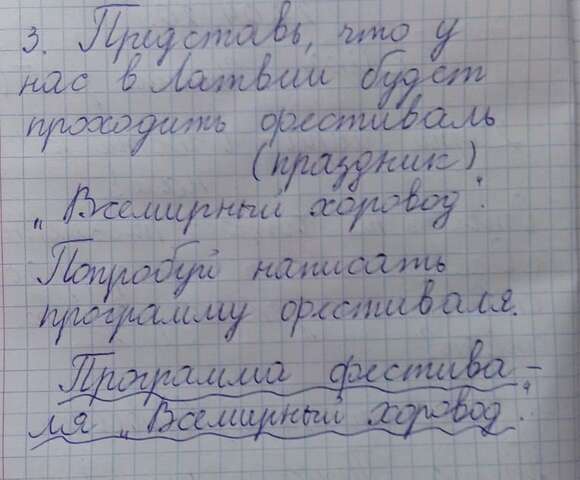 3. Представь, что у
нас в Латвии будет
проходить фестиваль
(праздник)
„Всемирный хоровод".
Попробуй написать
программу фестиваля.
Программа фестива-
ля „Всемирный хоровод".